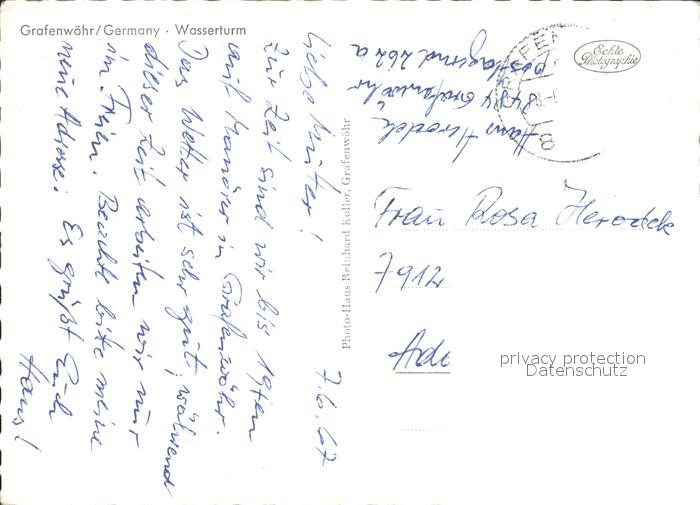 Grafenwöhr/Germany · Wasserturm
7.6.67
Liebe Mutter!
Zur Zeit sind wir bis 19ten
auf Manöver in Grafenwöhr.
Das Wetter ist sehr gut, während
dieser Zeit arbeiten wir nur
im Freien. Beachte bitte meine
neue Adresse. Es grüßt Euch
Hans!
Photo-Haus Reinhard Koller, Grafenwöhr
Hans Herodek
8484 Grafenwöhr
postlagernd 262 a
Echte
Photographie
Frau Rosa Herodek
7912
privacy protection
Datenschutz